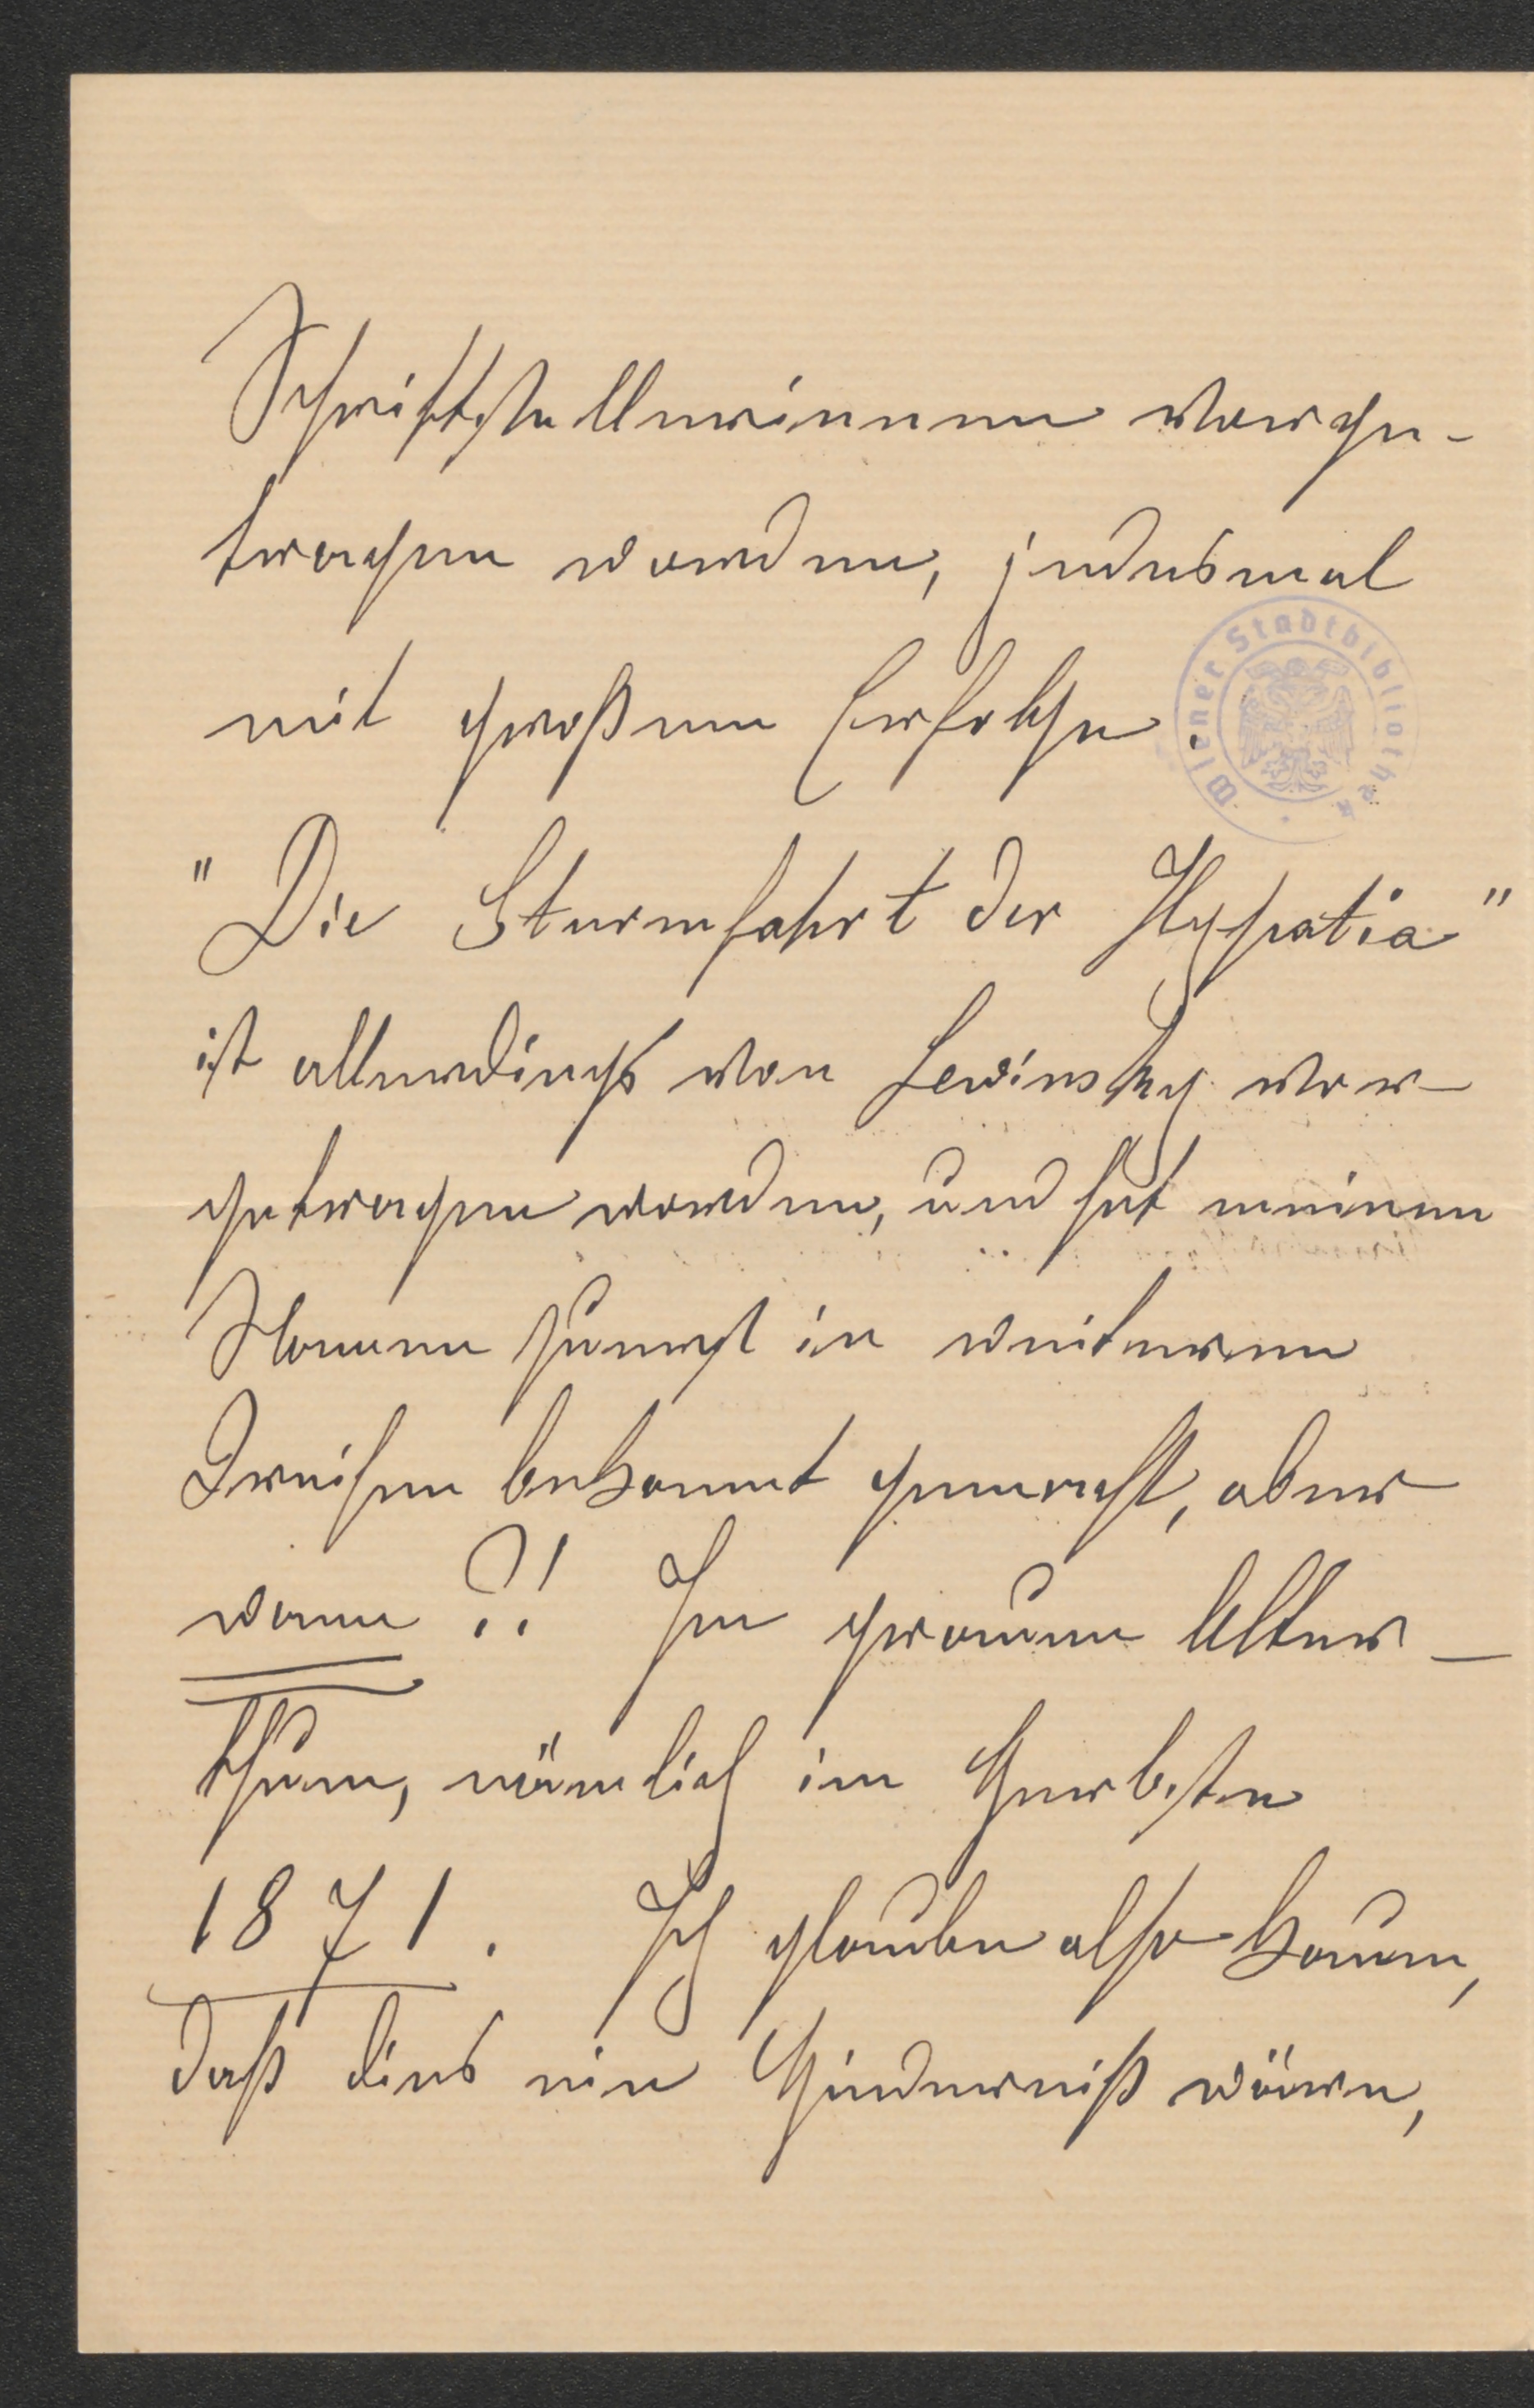 Schriftstellerinnen vorge-
tragen worden, jedesmal
mit großem Erfolge.
Wiener Stadtbibliothek
"Die Sturmfahrt der Hypatia"
ist allerdings von Lewinsky vor-
getragen worden, und hat meinen
Namen zuerst in weiteren
Kreisen bekannt gemacht, aber
wann ?! Im grauen Alter-
thum, nämlich im Herbste
1871. Ich glaube also kaum,
daß dies ein Hinderniß wäre,